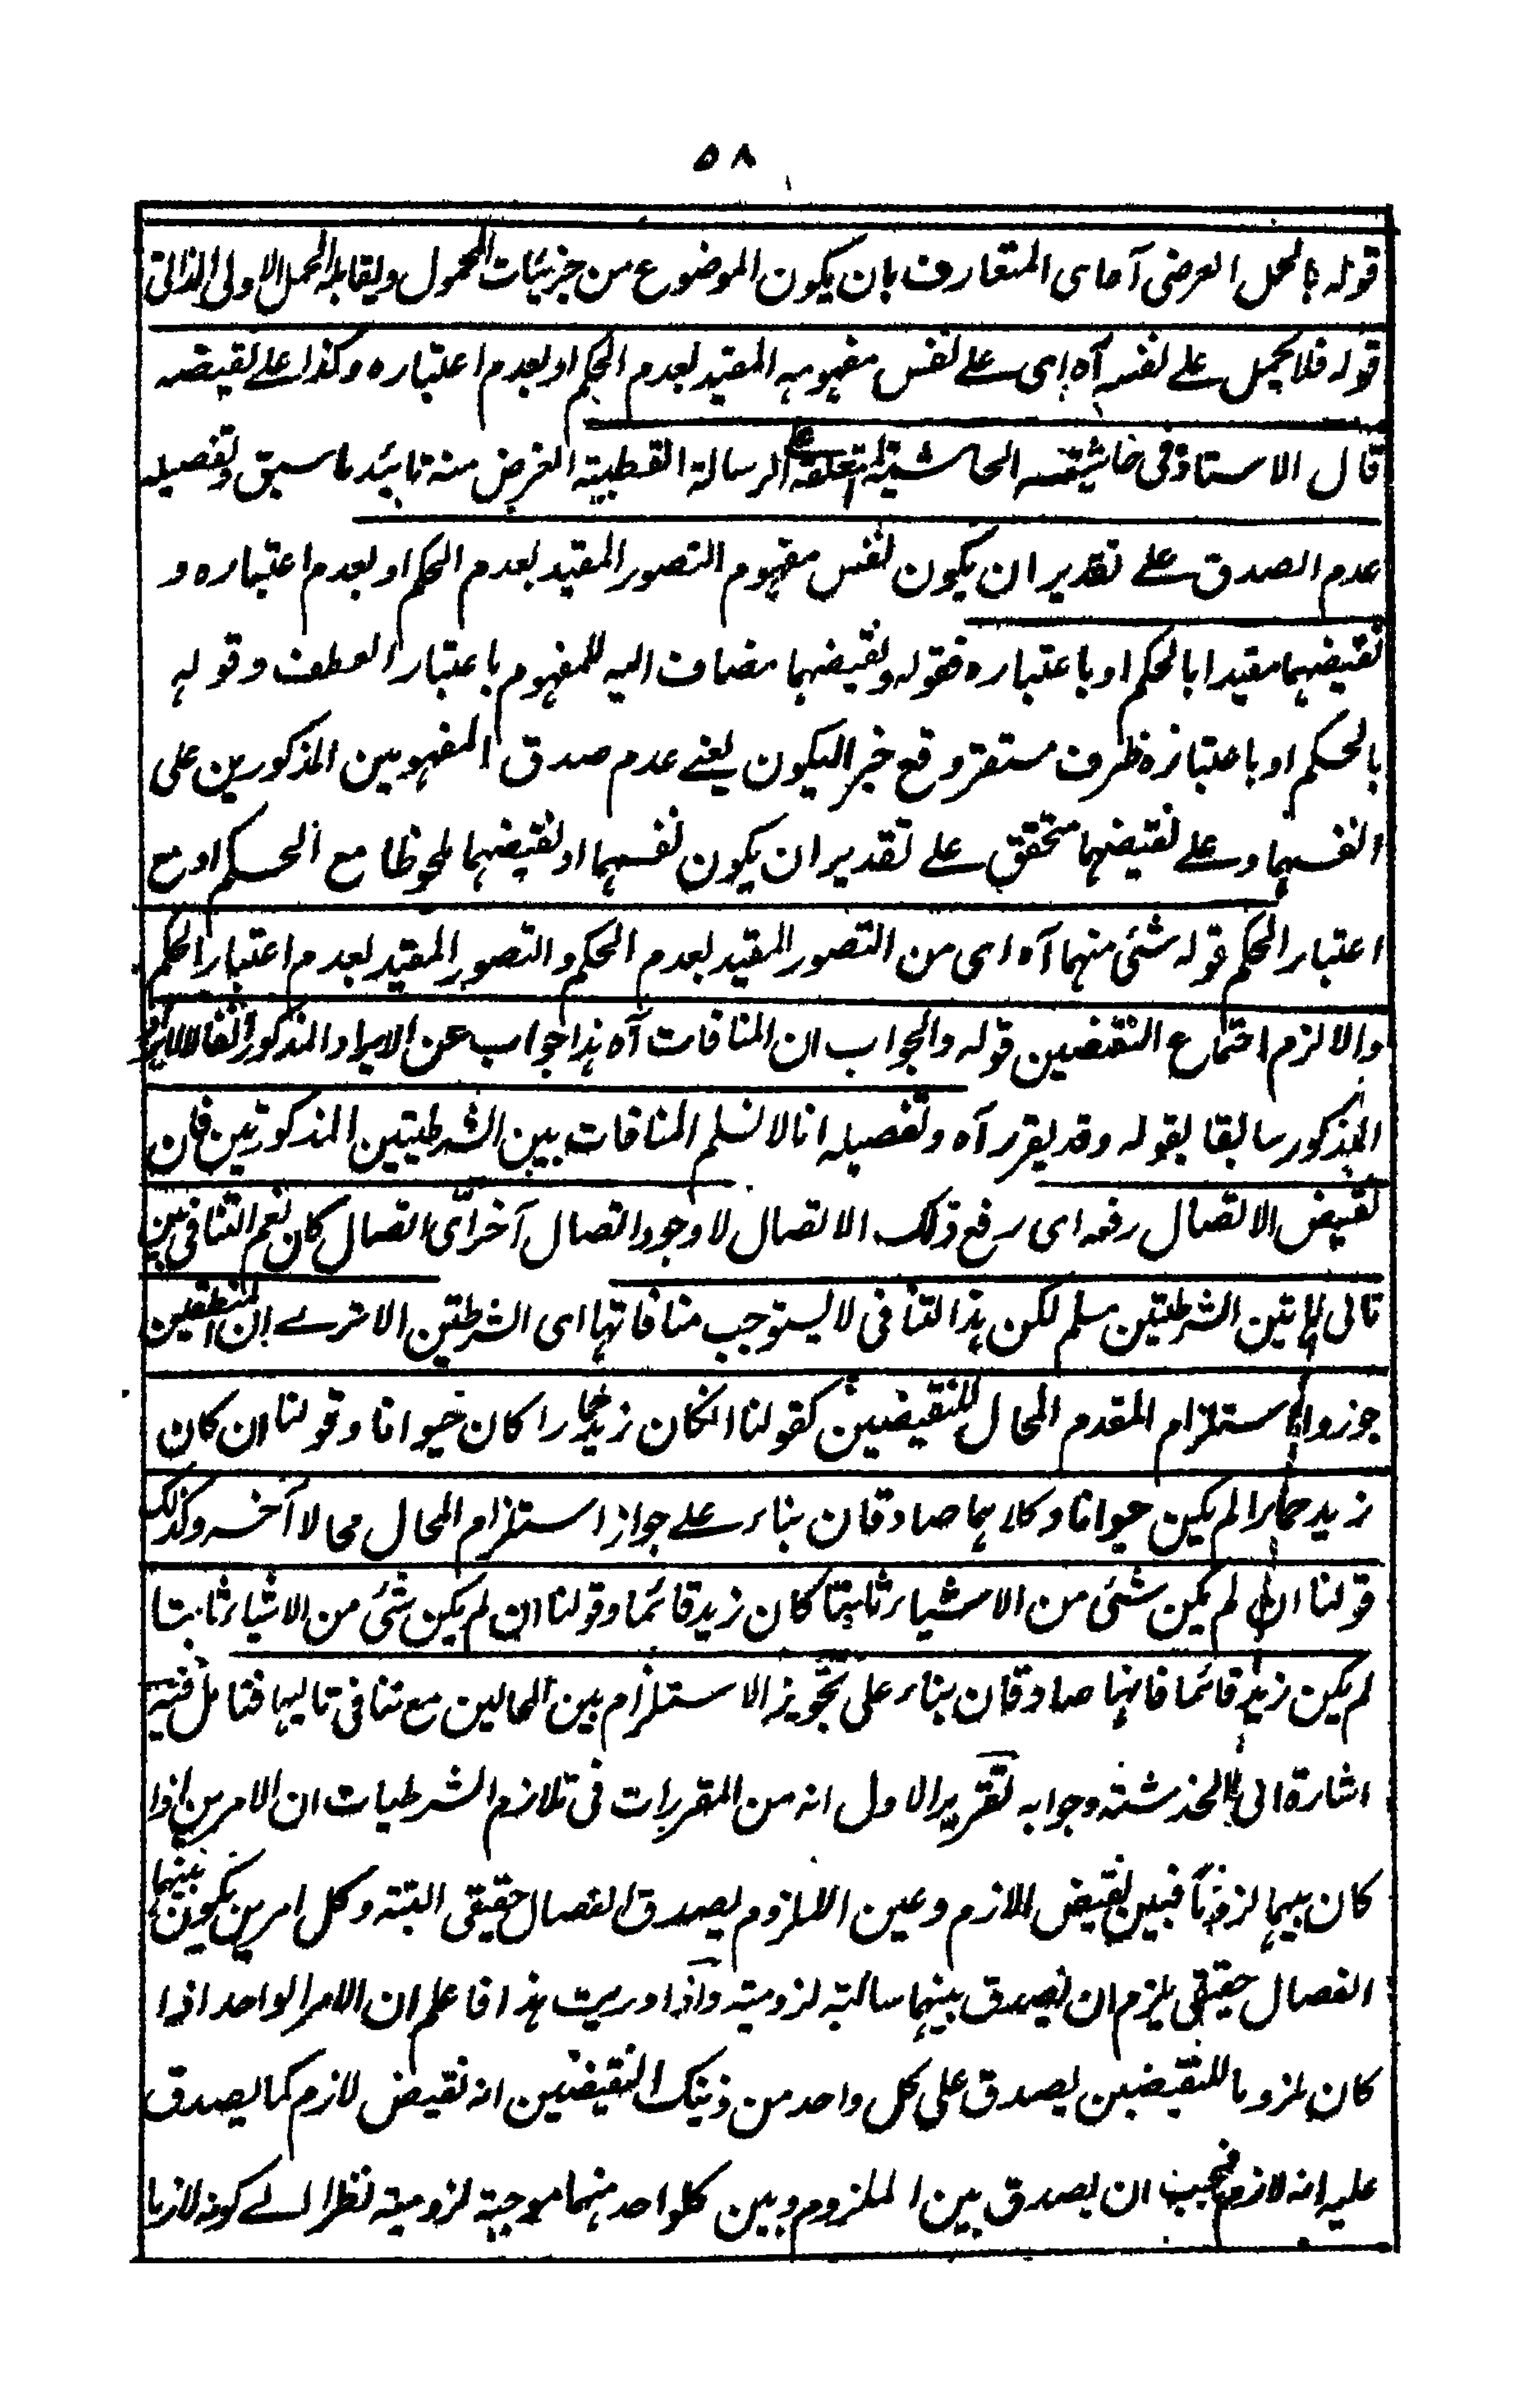 ٥٨
قوله بالحمل العرضى آه اى المتعارف بان يكون الموضوع من جزئيات المحمول ويقابله الحمل الاولى الذاتى
قوله فلا يحمل على نفسه آه اى على نفس مفهومه المقيد بعدم الحكم او بعدم اعتباره وكذا على نقيضه
قال الاستاذ فى حاشيته الحاشية المتعلقة على الرسالة القطبية الغرض منه تائيد ما سبق وتفصيله
عدم الصدق على تقدير ان يكون نفس مفهوم التصور المقيد بعدم الحكم او بعدم اعتباره و
نقيضهما مقيدا بالحكم او باعتباره فقوله ونقيضهما مضاف اليه للمفهوم باعتبار العطف وقوله
بالحكم او باعتباره ظرف مستقر وقع خبر اليكون يعنے عدم صدق المفهومين المذكورين على
انفسهما وعلے نقيضهما متحقق علے تقدير ان يكون نفسهما او نقيضهما ملحوظا مع الحكم او مع
اعتبار الحكم قوله شئى منهما آه اى من التصور المقيد بعدم الحكم والتصور المقيد بعدم اعتبار الحكم
والا لزم اجتماع النقيضين قوله والجواب ان المنافات آه هذا جواب عن الايراد المذكور
المذكور سابقا بقوله وقد يقرر آه وتفصيله انا لا نسلم المنافات بين الشرطيتين المذكورتين فان
نقيض الاتصال رفعه اى رفع ذلك الاتصال لا وجود اتصال آخر اى اتصال كان نعم التنافى بين
تالى هاتين الشرطيتين مسلم لكن هذا التنافى لا يستوجب منافاتها اى الشرطيتين الا ترے ان المنطقيين
جوزوا استلزام المقدم المحال للنقيضين كقولنا انكان زيد حمارا كان حيوانا وقولنا ان كان
زيد حمارا لم يكين حيوانا وكلاهما صادقان بناء علے جواز استلزام المحال محالا آخر وكذلك
قولنا ان لم يكن شئى من الاشياء ثابتا كان زيد قائما وقولنا ان لم يكن شئى من الاشياء ثابتا
لم يكن زيد قائما فانهما صادقان بناء على تجويز الاستلزام بين المحالين مع تنافى تاليهما فتامل فيه
اشارة الى الخدشته وجوابه تقرير الاول انه من المقررات فى تلازم الشرطيات ان الامرين اذا
كان بينهما لزوم فبين نقيض اللازم وعين الملزوم يصدق انفصال حقيقى البتة وكل امرين يكون بينهما
انفصال حقيقى يلزم ان يصدق بينهما سالبة لزومية واذا دريت هذا فاعلم ان الامر الواحد اذا
كان ملزوما للنقيضين يصدق على كل واحد من ذينك النقيضين انه نقيض لازم كما يصدق
عليه انه لازم فيجب ان يصدق بين الملزوم وبين كلواحد منهما موجبة لزومية نظرا الے كونه لازما